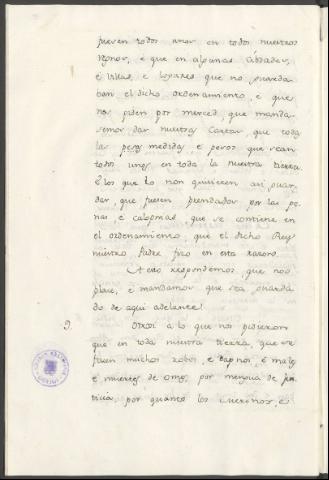 fuesen todos unos en todos nuestros
Regnos, e que en algunas cibdades,
e villas, e logares que no guarda-
ban el dicho ordenamiento, e que
nos piden por merced, que manda-
semos dar nuestras Cartas que todas
las pesas medidas, e pesos que sean
todos unos en toda la nuestra tierra.
E los que lo non quisieren asi guar-
dar, que fuesen prendados por las pe-
nas, e calopnias que se contiene en
el ordenamiento, que el dicho Rey
nuestro Padre fizo en esta razon.
A esto respondemos que nos
place, e mandamos que sea guarda-
do de aqui adelante.
9. Otrosi a lo que nos pidieron
que en toda nuestra tierra, que se
facen muchos robos, e males
e muertes de omes, por mengua de jus-
ticia, por quanto los merinos, e